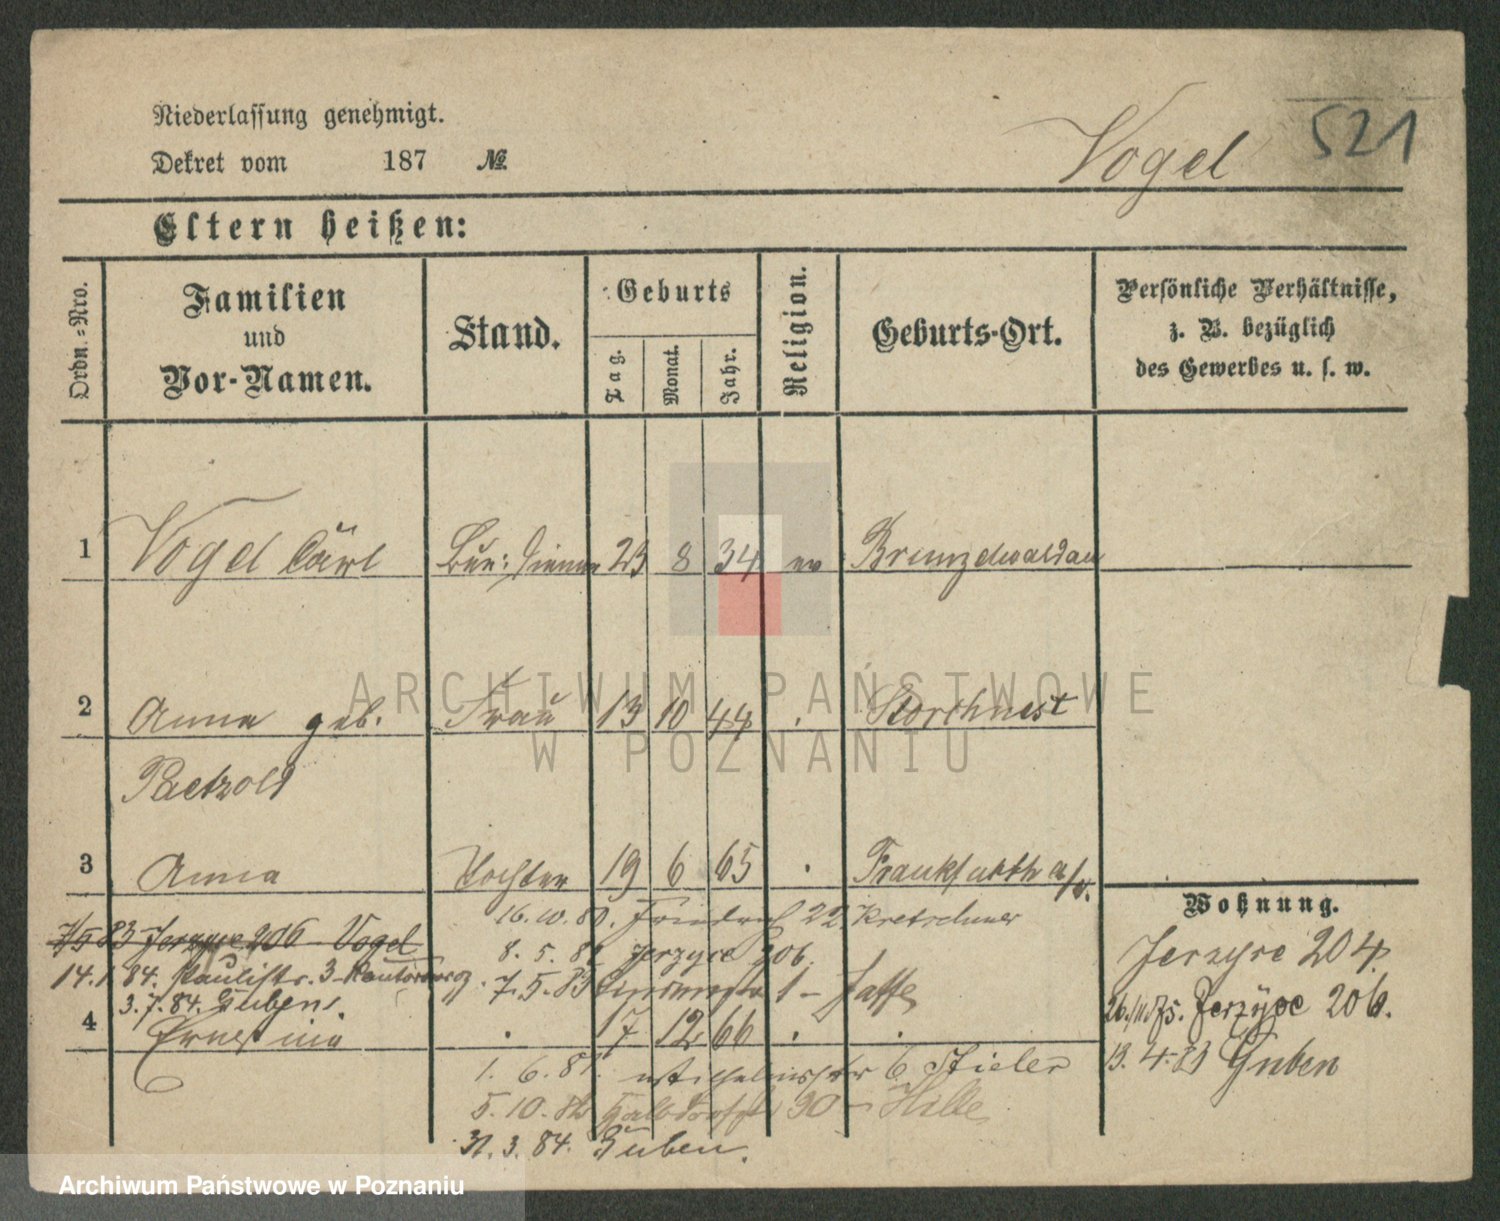 Niederlassung genehmigt.
Dekret vom 187 №
Vogel 521
Eltern heißen:
Ordn.-Nro.
Familien und Vor-Namen.
Stand.
Geburts
Tag. Monat. Jahr.
Religion.
Geburts-Ort.
Persönliche Verhältnisse,
z. B. bezüglich
des Gewerbes u. s. w.
1 Vogel Carl 23 8 34 ev Brunzelwaldau
2 Anna geb. Frau 13 10 44 . Storchnest
Paetzold
3 Anna Tochter 19 6 65 . Frankfurth a/O.
Wohnung.
16.10.80. 22 Kretschmer
7/5 83 Jerzyce 206 Vogel
Jerzyce 204
8. 5. 82 Jerzyce 206.
14.1.84. Paulistr. 3 Kantorowicz
7.5.83 1 – Jaffe
3.7.84. Guben.
26./11.75. Jerzyce 206.
4 Ernestine . 7 12 66 . .
13. 4. 83 Guben
1. 6. 81. Wilhelmstr 6 Stieler
5. 10. 82 Halbdorfstr 30 – Hille
31. 3. 84. Guben.
ARCHIWUM PAŃSTWOWE
W POZNANIU
Archiwum Państwowe w Poznaniu